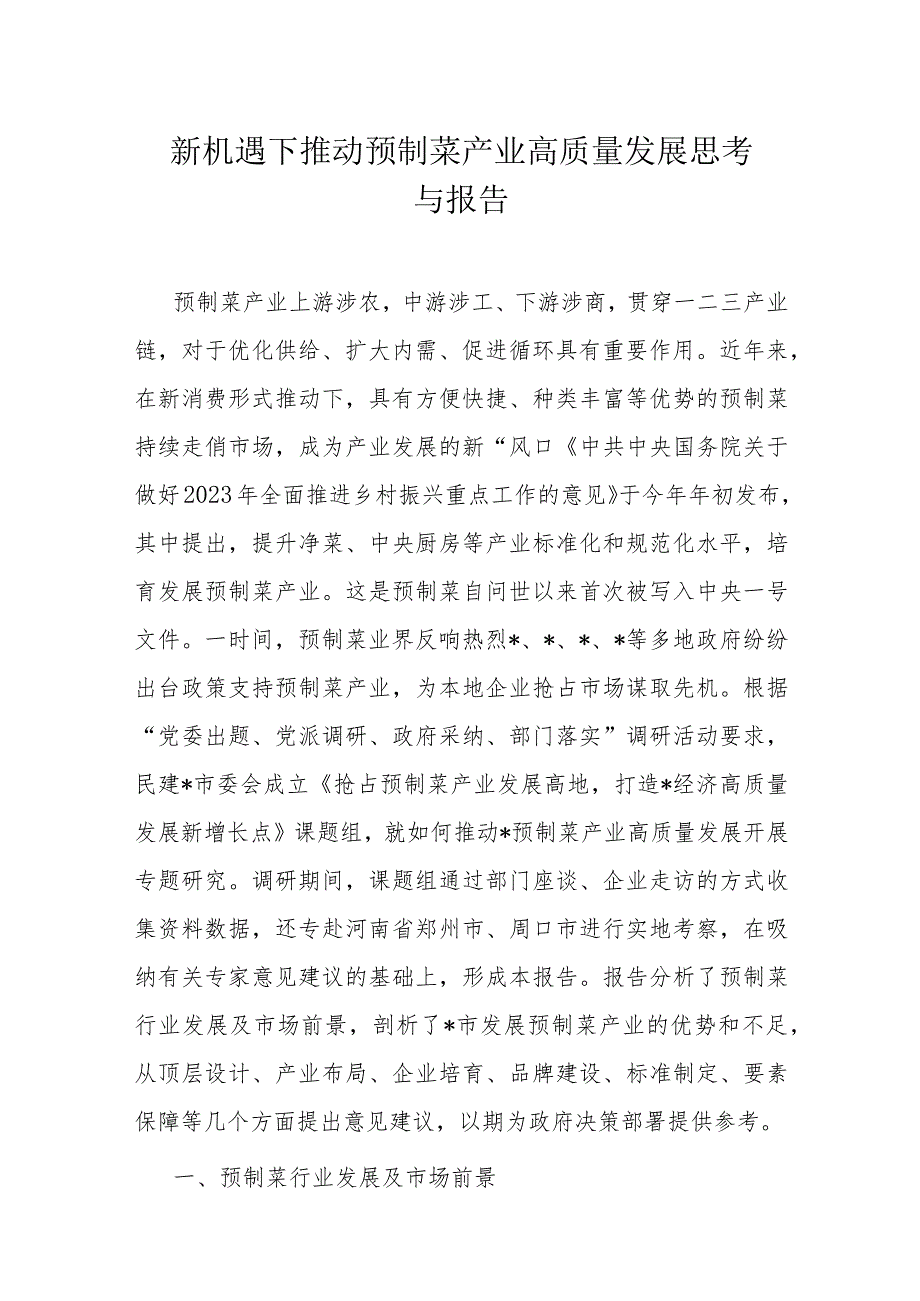 新机遇下推动预制菜产业高质量发展思考
与报告
预制菜产业上游涉农，中游涉工、下游涉商，贯穿一二三产业
链，对于优化供给、扩大内需、促进循环具有重要作用。近年来，
在新消费形式推动下，具有方便快捷、种类丰富等优势的预制菜
持续走俏市场，成为产业发展的新“风口《中共中央国务院关于
做好2023年全面推进乡村振兴重点工作的意见》于今年年初发布，
其中提出，提升净菜、中央厨房等产业标准化和规范化水平，培
育发展预制菜产业。这是预制菜自问世以来首次被写入中央一号
文件。一时间，预制菜业界反响热烈*、*、*、*等多地政府纷纷
出台政策支持预制菜产业，为本地企业抢占市场谋取先机。根据
“党委出题、党派调研、政府采纳、部门落实”调研活动要求，
民建*市委会成立《抢占预制菜产业发展高地，打造*经济高质量
发展新增长点》课题组，就如何推动*预制菜产业高质量发展开展
专题研究。调研期间，课题组通过部门座谈、企业走访的方式收
集资料数据，还专赴河南省郑州市、周口市进行实地考察，在吸
纳有关专家意见建议的基础上，形成本报告。报告分析了预制菜
行业发展及市场前景，剖析了*市发展预制菜产业的优势和不足，
从顶层设计、产业布局、企业培育、品牌建设、标准制定、要素
保障等几个方面提出意见建议，以期为政府决策部署提供参考。
一、预制菜行业发展及市场前景